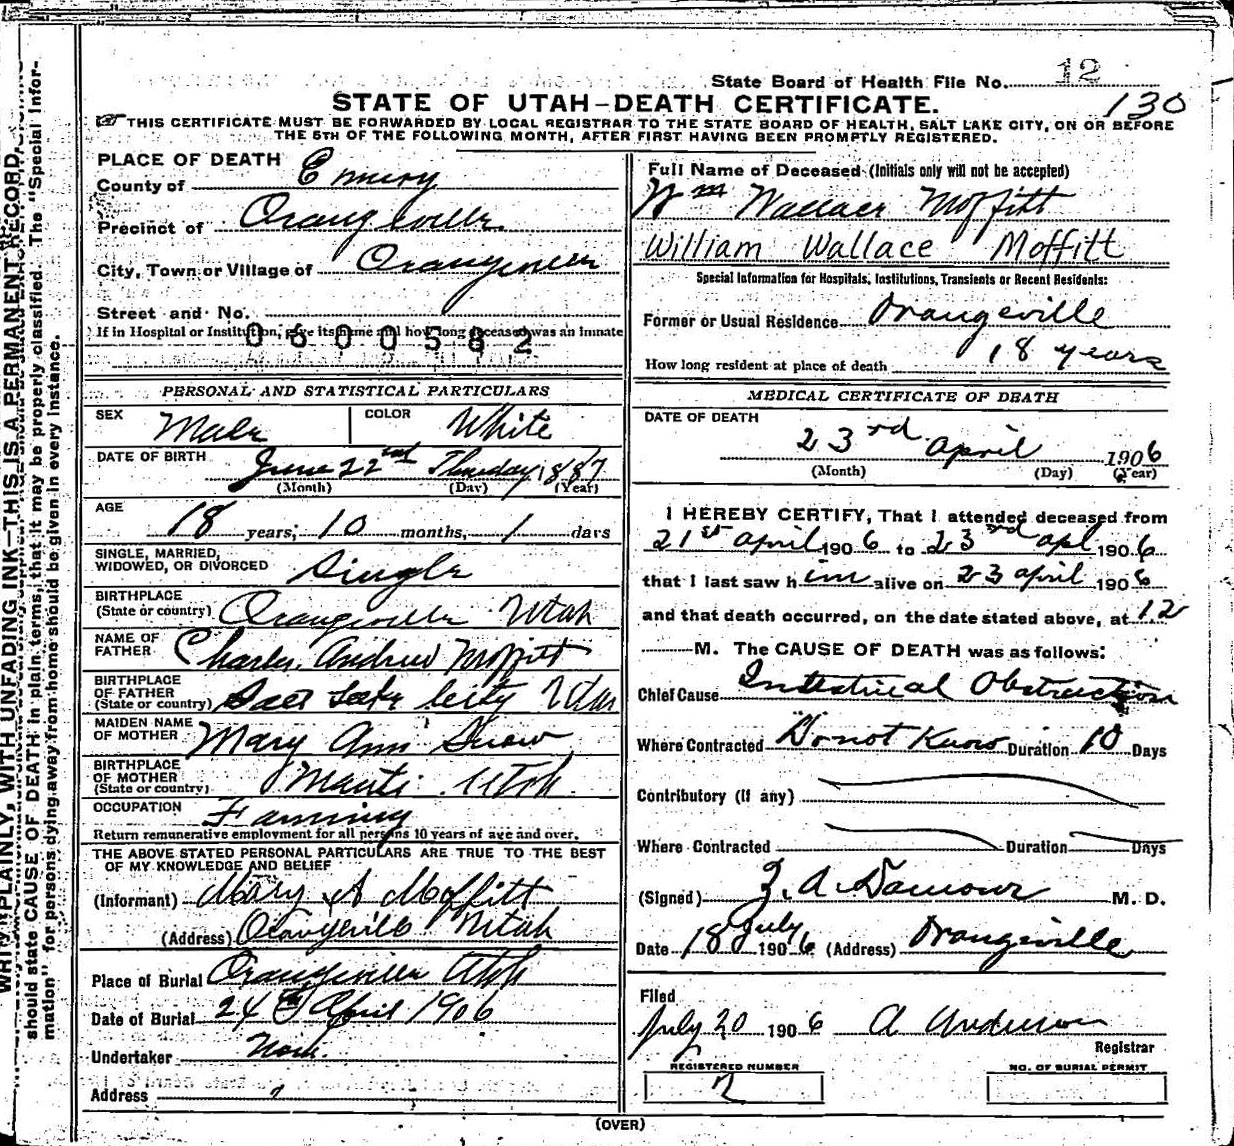 State Board of Health File No. 12
130
STATE OF UTAH-DEATH CERTIFICATE.
THIS CERTIFICATE MUST BE FORWARDED BY LOCAL REGISTRAR TO THE STATE BOARD OF HEALTH, SALT LAKE CITY, ON OR BEFORE
THE 5TH OF THE FOLLOWING MONTH, AFTER FIRST HAVING BEEN PROMPTLY REGISTERED.
WRITE PLAINLY, WITH UNFADING INK-THIS IS A PERMANENT RECORD.
should state CAUSE OF DEATH in plain terms, that it may be properly classified. The "Special Infor-
mation" for persons dying away from home should be given in every instance.
PLACE OF DEATH
County of Emery
Precinct of Orangeville
City, Town or Village of Orangeville
Street and No.
If in Hospital or Institution, give its name and how long deceased was an inmate
0600582
PERSONAL AND STATISTICAL PARTICULARS
SEX Male COLOR White
DATE OF BIRTH June 22nd Thursday 1887
(Month) (Day) (Year)
AGE
18 years; 10 months, 1 days
SINGLE, MARRIED,
WIDOWED, OR DIVORCED Single
BIRTHPLACE
(State or country) Orangeville Utah
NAME OF
FATHER Charles Andrew Moffitt
BIRTHPLACE
OF FATHER
(State or country) Salt Lake City Utah
MAIDEN NAME
OF MOTHER Mary Ann Snow
BIRTHPLACE
OF MOTHER
(State or country) Manti Utah
OCCUPATION Farming
Return remunerative employment for all persons 10 years of age and over.
THE ABOVE STATED PERSONAL PARTICULARS ARE TRUE TO THE BEST
OF MY KNOWLEDGE AND BELIEF
(Informant) Mary A Moffitt
(Address) Orangeville Utah
Place of Burial Orangeville Utah
Date of Burial 24 April 1906
Undertaker None.
Address
Full Name of Deceased (Initials only will not be accepted)
Wm Wallace Moffitt
William Wallace Moffitt
Special Information for Hospitals, Institutions, Transients or Recent Residents:
Former or Usual Residence Orangeville
How long resident at place of death 18 years
MEDICAL CERTIFICATE OF DEATH
DATE OF DEATH
23rd April 1906
(Month) (Day) (Year)
I HEREBY CERTIFY, That I attended deceased from
21st April 1906 to 23rd apl 1906
that I last saw him alive on 23 april 1906
and that death occurred, on the date stated above, at 12
M. The CAUSE OF DEATH was as follows:
Chief Cause Intestinal Obstruction
Where Contracted Do not Know Duration 10 Days
Contributory (if any)
Where Contracted Duration Days
(Signed) M. D.
Date 18 July 1906 (Address) Orangeville
Filed
July 20 1906 A Anderson
Registrar
REGISTERED NUMBER NO. OF BURIAL PERMIT
(OVER)